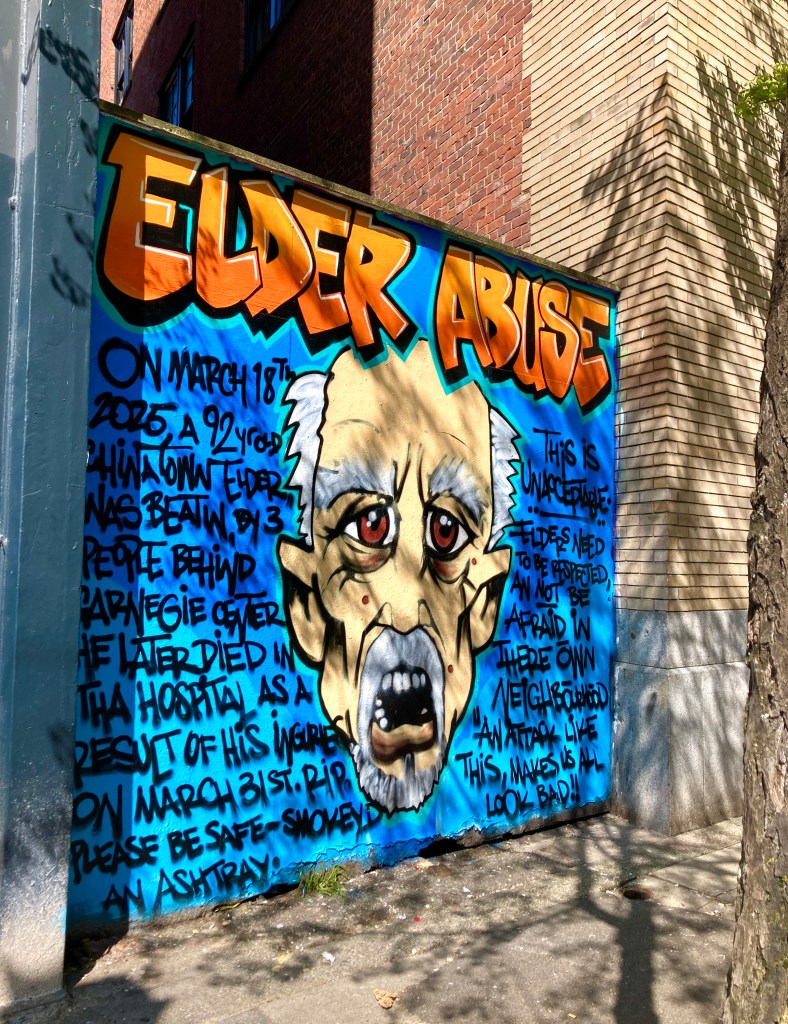 ELDER ABUSE
ON MARCH 18TH
2025, A 92 yrOLD
CHINATOWN ELDER
WAS BEATIN, BY 3
PEOPLE BEHIND
CARNEGIE CENTER
HE LATER DIED IN
THA HOSPITAL AS A
RESULT OF HIS INGURIES
ON MARCH 31ST. RIP.
PLEASE BE SAFE - SMOKEY D
AN ASHTRAY.
THIS IS
UNACCEPTABLE.
ELDERS NEED
TO BE RESPECTED,
AN NOT BE
AFRAID IN
THERE OWN
NEIGHBOURHOOD
"AN ATTACK LIKE
THIS, MAKES US ALL
LOOK BAD!!